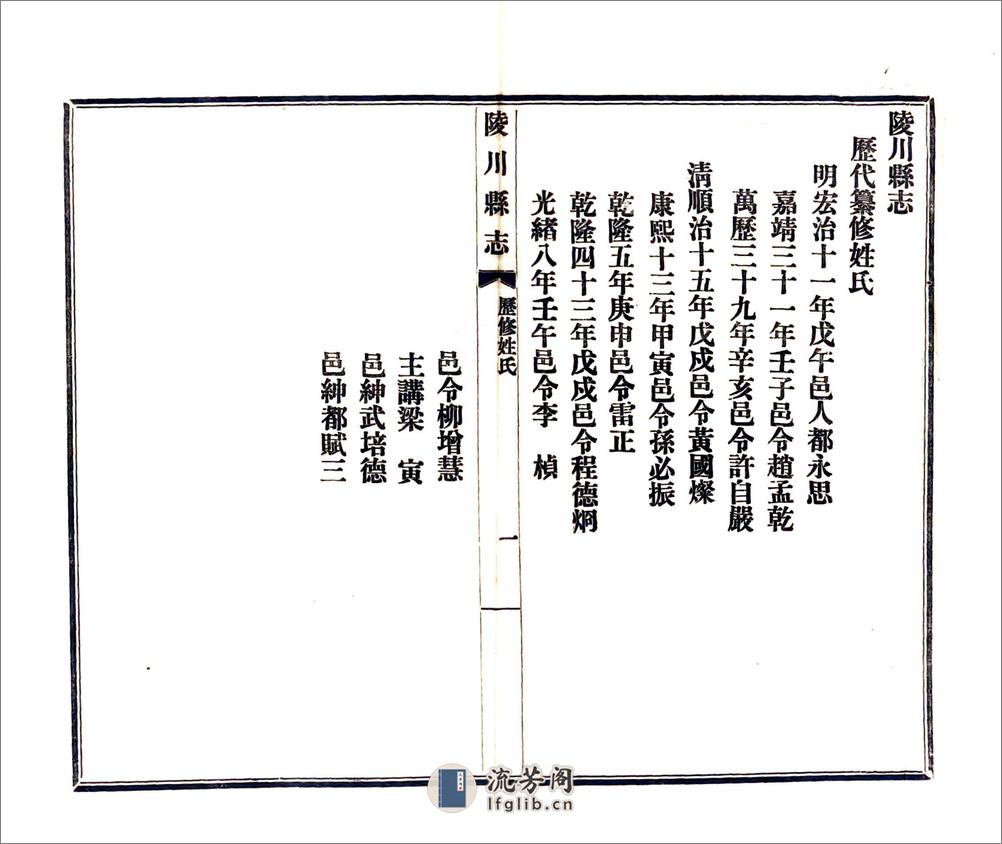 陵川縣志
歷代纂修姓氏
明宏治十一年戊午邑人都永思
嘉靖三十一年壬子邑令趙孟乾
萬歷三十九年辛亥邑令許自嚴
清順治十五年戊戌邑令黃國燦
康熙十三年甲寅邑令孫必振
乾隆五年庚申邑令雷正
乾隆四十三年戊戌邑令程德炯
光緒八年壬午邑令李 楨
陵川縣志
歷修姓氏
一
邑令柳增慧
主講梁 寅
邑紳武培德
邑紳都賦三
流芳阁
lfglib.cn